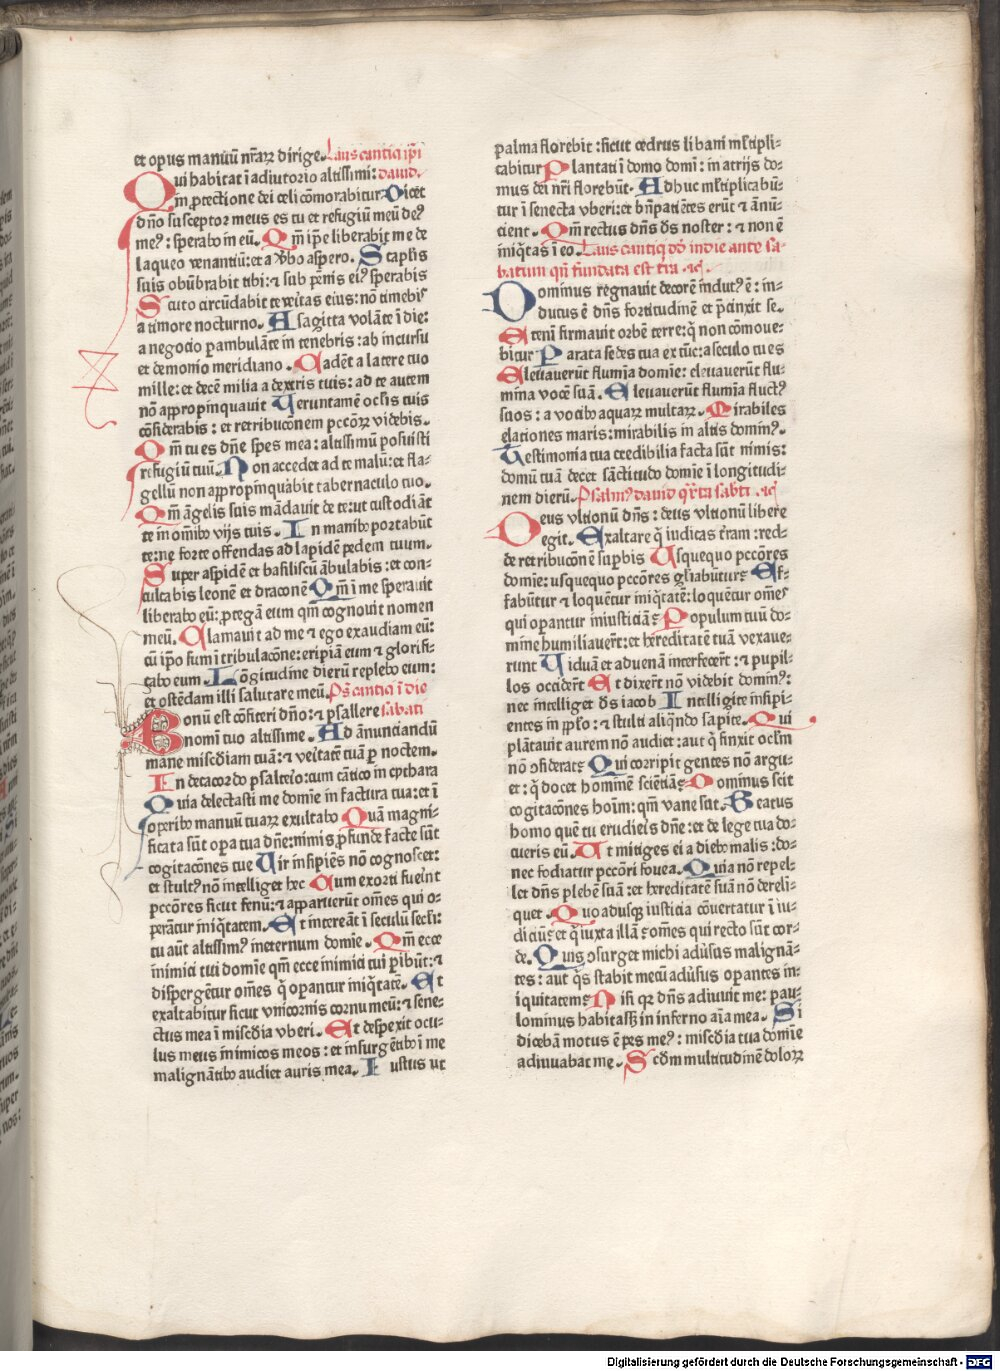 et opus manuū nr̄aꝝ dirige. Laus cantici ip̄i
Qui habitat ī adiutorio altissimi: david.
ī ꝓtectione dei celi cōmorabitur Dicet
dn̄o susceptor meus es tu et refugiū meū deꝰ
meꝰ: sperabo in eū. Qm̄ ip̄e liberabit me de
laqueo venantiū: et a v̄bo aspero. Scaplis
suis obūbrabit tibi: ⁊ sub pēnis eiꝰ sperabis
Scuto circūdabit te veritas eius: nō timebis
a timore nocturno. A sagitta volāte ī die:
a negocio ꝑambulāte in tenebris: ab incursu
et demonio meridiano. Cadēt a latere tuo
mille: et decē milia a dextris tuis: ad te autem
nō appropīnquavit Veruntamē oclis tuis
cōsiderabis: et retribucōnem pccōꝝ videbis.
Qm̄ tu es dn̄e spes mea: altissimū posuisti
refugiū tuū. Non accedet ad te malū: et fla⸗
gellū non appropīnquabit tabernaculo tuo.
Qm̄ āgelis suis mādavit de te: ut custodiāt
te in om̄ibꝰ vijs tuis. In manibꝰ portabūt
te: ne forte offendas ad lapidē pedem tuum.
Super aspidē et basiliscū ābulabis: et con⸗
culcabis leonē et draconē Qm̄ ī me speravit
liberabo eū: ꝓtegā eum qm̄ cognovit nomen
meū. Clamavit ad me ⁊ ego exaudiam eū:
cū ip̄o sum ī tribulacōne: eripiā eum ⁊ glorifi⸗
cabo eum. Lōgitudine dierū replebo eum:
et ostēdam illi salutare meū. Pꝰs cantici ī die
Bonū est cōfiteri dn̄o: ⁊ psallere sabati
nomī tuo altissime. Ad ānunciandū
mane mis̄cdiam tuā: ⁊ veritatē tuā ꝑ noctem.
In decacordo psalterio: cum cātico in cythara
Quia delectasti me domīe in factura tua: et ī
operibꝰ manuū tuaꝝ exultabo Quā magni⸗
ficata sūt opera tua dn̄e: nimis ꝓfunde facte sūt
cogitacōnes tue Vir insipiēs nō cognoscet:
et stultꝰ nō intelliget hec Cum exorti fuerīt
pccōres sicut fenū: ⁊ apparuerūt om̄es qui o⸗
perātur iniq̄tatem. Et intereāt ī seculū secli:
tu aūt altissimꝰ ineternum domīe. Qm̄ ecce
inimici tui domīe qm̄ ecce inimici tui ꝑibūt: ⁊
dispergētur om̄es q̄ operantur iniq̄tatē. Et
exaltabitur sicut vnicornis cornu meū: ⁊ sene⸗
ctus mea ī mis̄cdia vberi. Et despexit ocu⸗
lus meus inimicos meos: et insurgētibꝰ ī me
malignātibꝰ audiet auris mea. Iustus ut
palma florebit: sicut cedrus libani ml̄tipli⸗
cabitur Plantati ī domo domī: in atrijs do⸗
mus dei nr̄i florebūt. Adhuc ml̄tiplicabū⸗
tur ī senecta vberi: et bn̄patiētes erūt ⁊ ānū⸗
cient. Qm̄ rectus dn̄s d̄s noster: ⁊ non ē
iniq̄tas ī eo. Laus cantiq̄ dd̄ in die ante sa⸗
batum qn̄ fundata est t̄ra .xcj.
Dominus regnavit decorē īndutꝰ ē: in⸗
dutus ē dn̄s fortitudinē et p̄cinxit se.
Etenī firmavit orbē terre: q̄ non cōmoue⸗
bitur Parata sedes tua ex tūc: a seculo tu es
Eleuauerūt flumīa domīe: eleuauerūt flu⸗
mina vocē suā. Eleuauerūt flumīa fluctꝰ
suos: a vocibꝰ aquaꝝ multaꝝ. Mirabiles
elationes maris: mirabilis in altis dominꝰ.
Testimonia tua credibilia facta sūt nimis:
domū tuā decet sāctitudo domīe ī longitudi⸗
nem dierū. Psalmꝰ david q̄rta sabb̄i .xcij
Deus vltionū dn̄s: deus vltionū libere
egit. Exaltare q̄ iudicas t̄ram: red⸗
de retribucōnē supbis Vsquequo pccōres
domīe: usquequo pccōres gl̄iabūtur⸗ Ef⸗
fabūtur ⁊ loquētur iniq̄tatē: loquētur om̄es
qui operantur iniusticiā⸗ Populum tuū do⸗
mīne humiliauer̄t: et hereditatē tuā vexaue⸗
runt Viduā et aduenā interfecer̄t: ⁊ pupil⸗
los occider̄t Et dixer̄t nō videbit dominꝰ:
nec intelliget d̄s iacob Intelligite insipi⸗
entes in pp̄lo: ⁊ stulti aliq̄ndo sapite. Qui
plātavit aurem nō audiet: aut q̄ finxit oclm̄
nō ꝯsiderat⸗ Qui corripit gentes nō argu⸗
et: q̄ docet hominē scientiā⸗ Dominus scit
cogitacōnes hoīm: qm̄ vane sūt. Beatus
homo quē tu erudieis dn̄e: et de lege tua do⸗
cueris eū. Ut mitiges ei a diebꝰ malis: do⸗
nec fodiatur pccōri fouea. Quia nō repel⸗
let dn̄s plebē suā: et hereditatē suā nō dereli⸗
quet. Quoadusq̄ iusticia cōuertatur ī iu⸗
diciū⸗ et q̄ iuxta illā⸗ om̄es qui recto sūt cor⸗
de. Quis ꝯsurget michi adūsus malignā⸗
tes: aut q̄s stabit mecū adūsus operantes in⸗
iquitatem⸗ Nisi qꝛ dn̄s adiuvit me: pau⸗
lominus habitasꝫ in inferno aīa mea. Si
dicebā motus ē pes meꝰ: mis̄cdia tua domīe
adiuuabat me. Scd̄m multitudinē doloꝝ
Digitalisierung gefördert durch die Deutsche Forschungsgemeinschaft - DFG